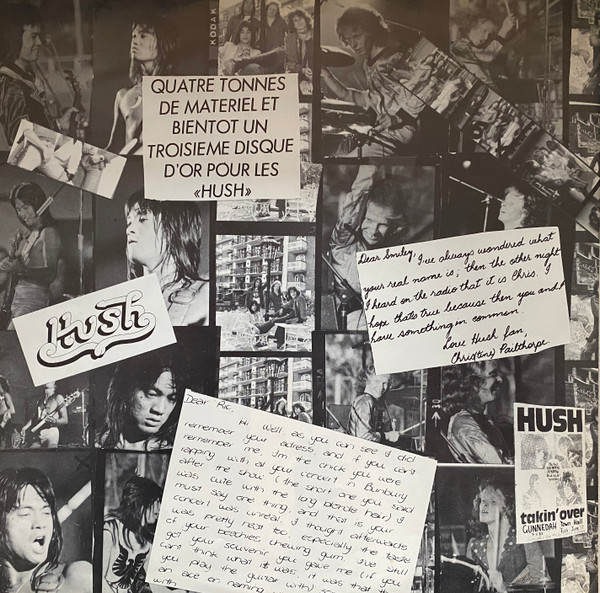 KODAK
QUATRE TONNES
DE MATERIEL ET
BIENTOT UN
TROISIEME DISQUE
D'OR POUR LES
«HUSH»
Dear Smiley, I've always wondered what
your real name is, then the other night
I heard on the radio that it is Chris. I
hope thats true because then you and I
have something in common.
Love Hush fan,
Christine Pailthorpe
Hush
Dear Ric,
Hi Well as you can see I did
remember your adress and if you can't
remember me, I'm the chick you were
rapping with at your concert in Bunbury
after the show (the short one you said
was cute with the long blonde hair) I
must say one thing, and that is your
concert was unreal, I thought afterwards
was pretty neat too especially the taste
of your beachies chewing gum, I've still
got your souvenir you gave me (if you
cant think what it was, it was that th
you play the guitar with)
HUSH
takin' over
GUNNEDAH Town Hall